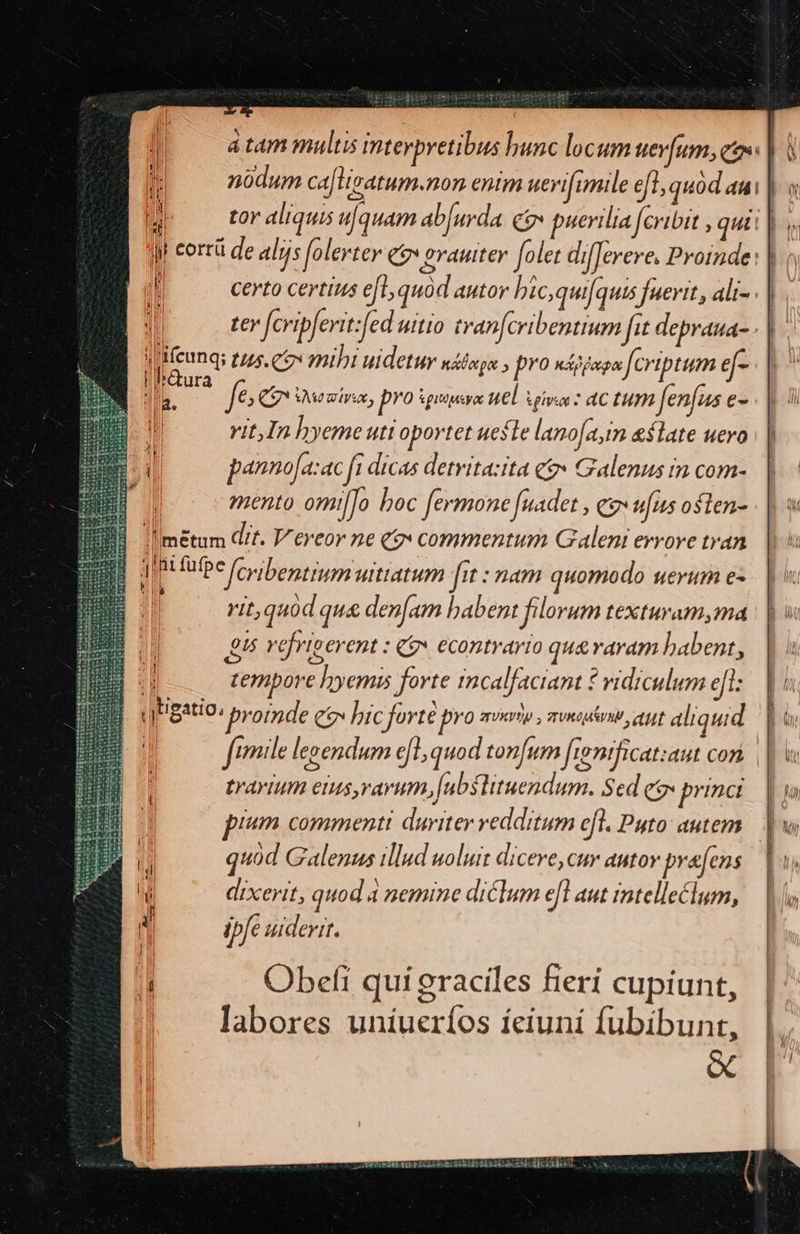 à tam multis interpretibus hunc locum uersum, &
nodum castigatum. non enim uerisimile est, quòd au
tor aliquis usquam absurda & puerilia scribit, qui
corrū de alijs solerter & grauiter solet disserere. Proinde
certo certius est, quòd autor hîc, quisquis fuerit, ali-
ter scripserit: sed uitio transcribentium sit depraua-
tus. & mihi uidetur
pro
scriptum es-
se, &
pro
uel
: ac tum sensus e-
rit, In hyeme uti oportet ueste lanosa, in æstate uero
pannosa: ac si dicas detrita: ita & Galenus in com-
mento omisso hoc sermone suadet, & usus osten-
mētum dit. Vereor ne & commentum Galeni errore tran
scribentium uitiatum sit: nam quomodo uerum e-
rit, quòd quæ densam habent filorum texturam, ma
gis refrigerent: & econtrario quæ raram habent,
tempore hyemis forte incalfaciant? ridiculum est:
tigatio. proinde & hic fortè pro
, aut aliquid
simile legendum est, quod tonsum significat: aut con
trarium eius, rarum, substituendum. Sed & princi
pium commenti duriter redditum est. Puto autem
quòd Galenus illud uoluit dicere, cur autor præsens
dixerit, quod à nemine dictum est aut intellectum,
ipse uiderit.
Obesi qui graciles fieri cupiunt,
labores uniuersos ieiuni subibunt,
&